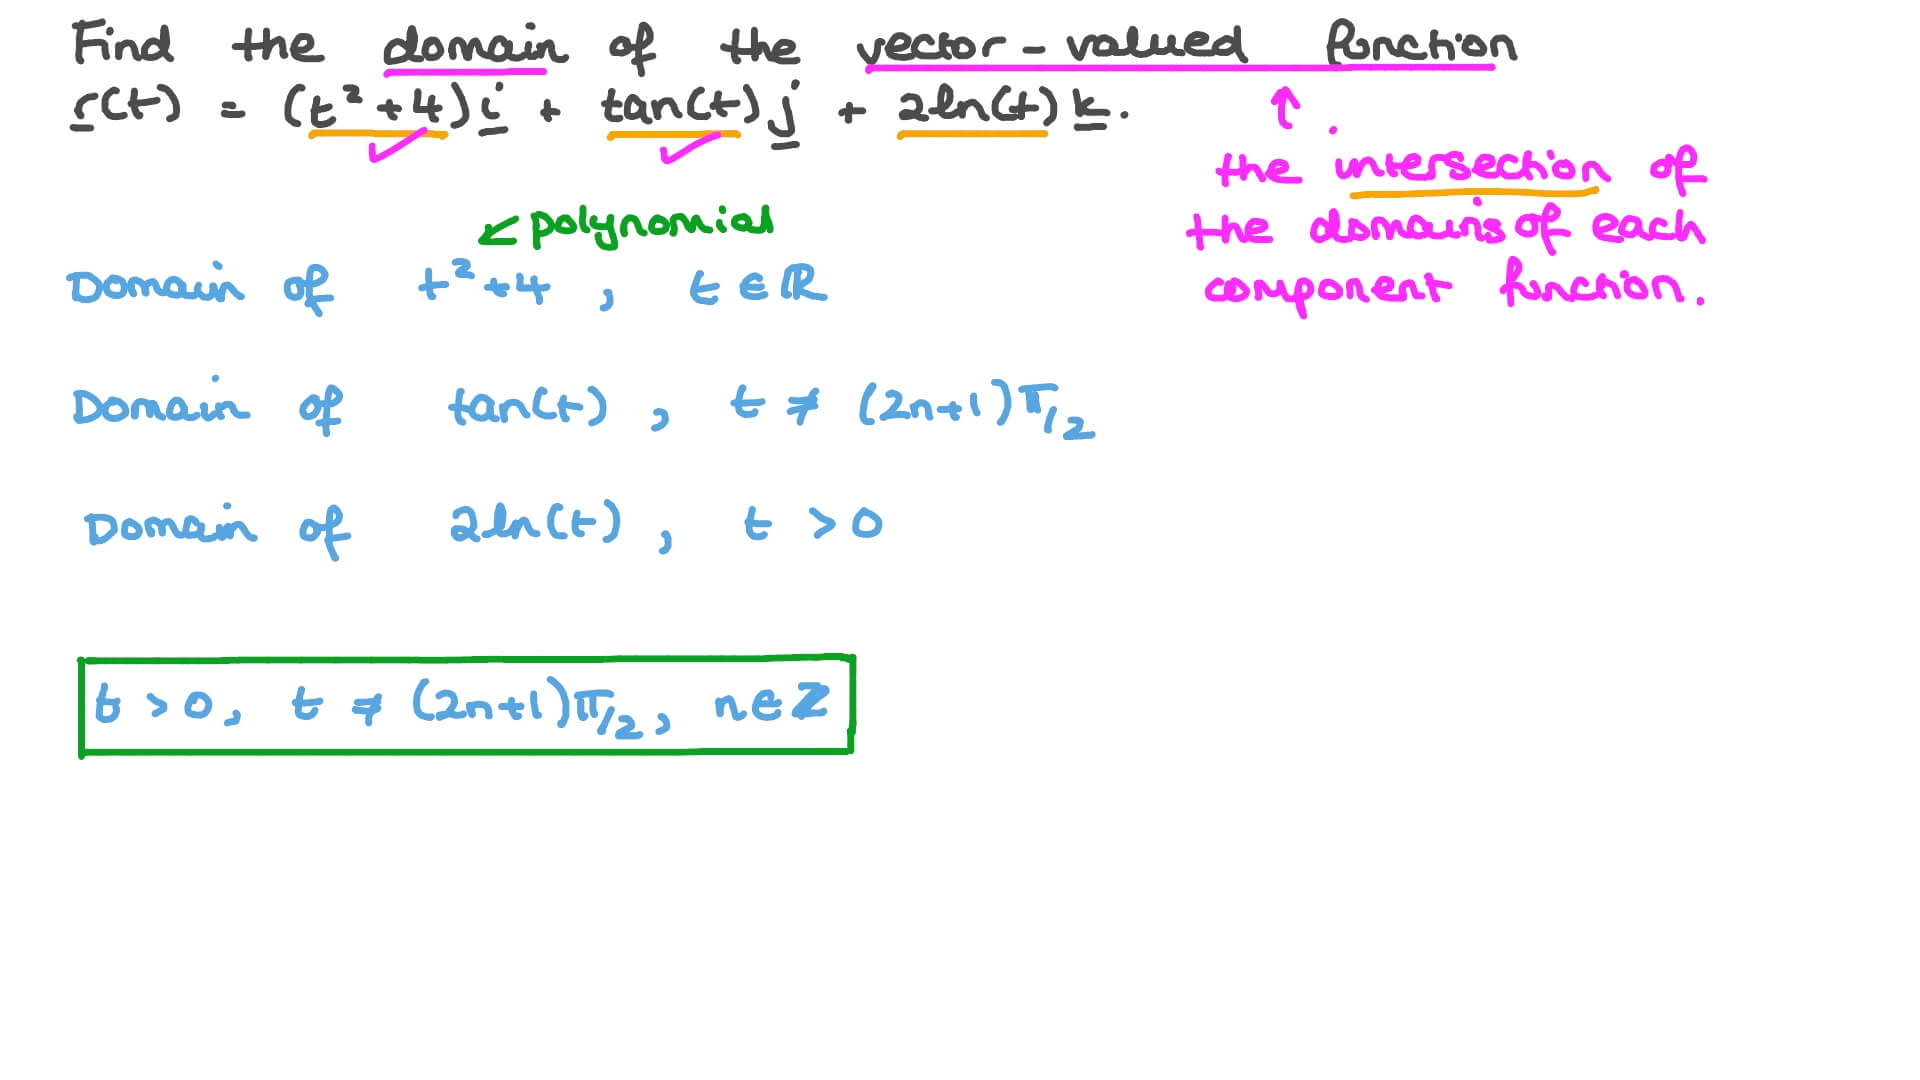 Find the domain of the vector-valued function
r(t) = (t²+4)i + tan(t)j + 2ln(t)k.
the intersection of
the domains of each
component function.
polynomial
Domain of t²+4, t∈ℝ
Domain of tan(t), t ≠ (2n+1)π/2
Domain of 2ln(t), t > 0
t > 0, t ≠ (2n+1)π/2, n∈ℤ